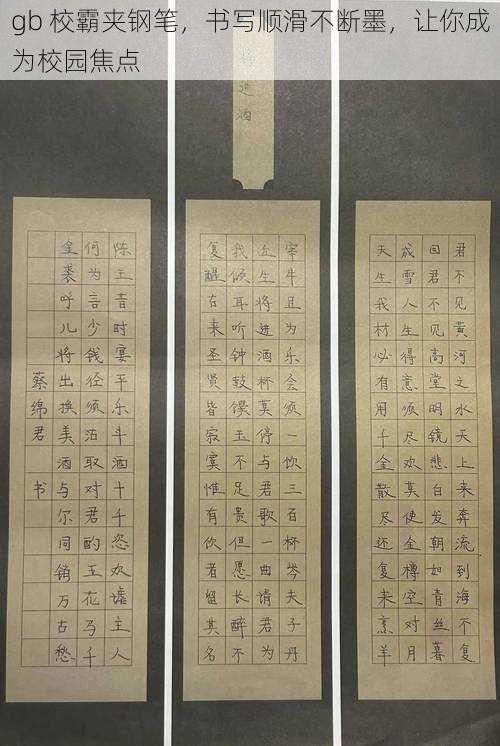 gb 校霸夹钢笔，书写顺滑不断墨，让你成
为校园焦点
将进酒
君不见黄河之水天上来奔流到海不复
回君不见高堂明镜悲白发朝如青丝暮
成雪人生得意须尽欢莫使金樽空对月
天生我材必有用千金散尽还复来烹羊
宰牛且为乐会须一饮三百杯岑夫子丹
丘生将进酒杯莫停与君歌一曲请君为
我倾耳听钟鼓馔玉不足贵但愿长醉不
复醒古来圣贤皆寂寞惟有饮者留其名
陈王昔时宴平乐斗酒十千恣欢谑主人
何为言少钱径须沽取对君酌五花马千
金裘呼儿将出换美酒与尔同销万古愁
蔡绵君书